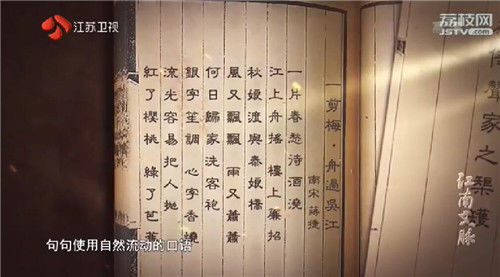 江苏卫视
荔枝网
JSTV.com
聲家之榘矱
一剪梅·舟過吳江
南宋 蔣捷
一片春愁待酒澆
江上舟搖 樓上簾招
秋娘渡與泰娘橋
風又飄飄 雨又蕭蕭
何日歸家洗客袍
銀字笙調 心字香燒
流光容易把人拋
紅了櫻桃 綠了芭蕉
江南文脉
句句使用自然流动的口语